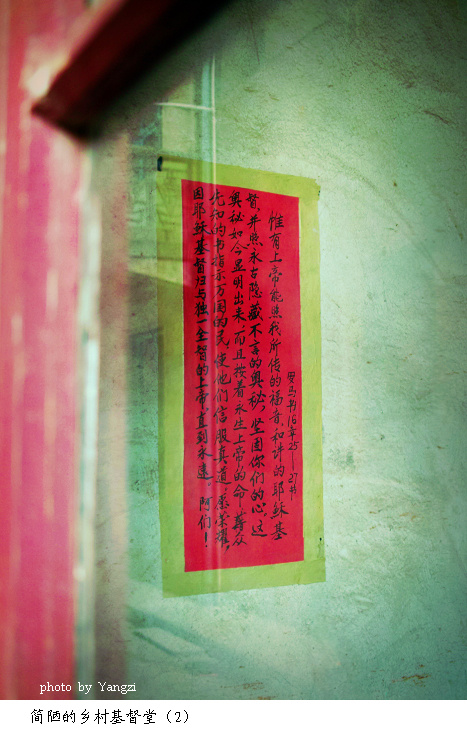 罗马书16章25—27节
惟有上帝能照我所传的福音和讲的耶稣基
督,并照永古隐藏不言的奥秘,坚固你们的心,这
奥秘如今显明出来,而且按着永生上帝的命,藉众
先知的书指示万国的民,使他们信服真道,愿荣耀,
因耶稣基督归与独一全智的上帝,直到永远。阿们!
photo by Yangzi
简陋的乡村基督堂(2)